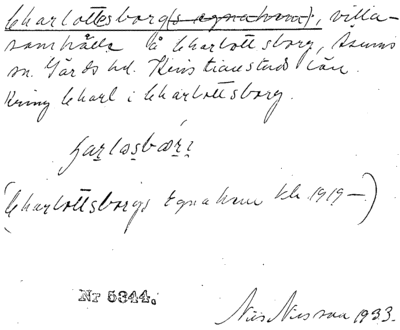 Charlottesborg(s egnahem), villa-
samhälle å Charlottsborg,
sn. Gärds hd. Kristianstads län.
Kring Charl i Charlottsborg.
(Charlottsborgs Egnahem 1919—)
Nr 5344.
Nils Nilsson 1933.